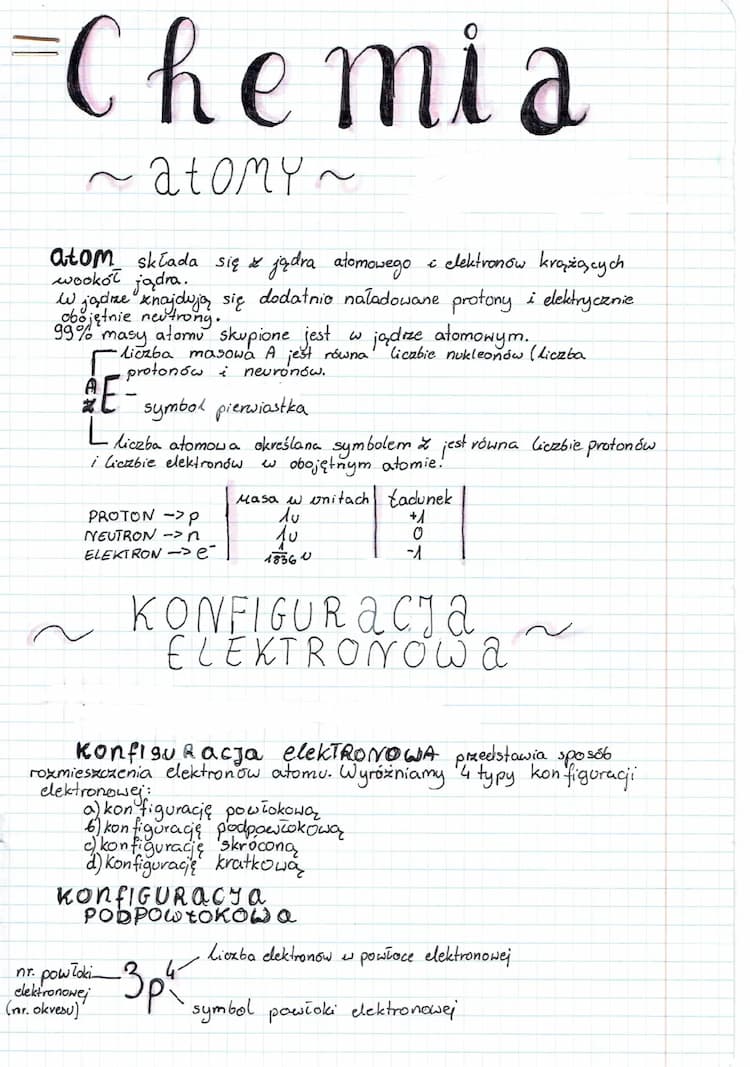 Chemia
~ atomy ~
atom składa się z jądra atomowego i elektronów krążących
wookół jądra.
W jądrze znajdują się dodatnio naładowane protony i elektrycznie
obojętnie neutrony.
99% masy atomu skupione jest w jądrze atomowym.
liczba masowa A jest równa liczbie nukleonów (liczba
protonów i neuronów.
A
Z E - symbol pierwiastka
liczba atomowa określana symbolem Z jest równa liczbie protonów
i liczbie elektronów w obojętnym atomie.
Masa w unitach | Ładunek
PROTON -> p | 1u | +1
NEUTRON -> n | 1u | 0
ELEKTRON -> e⁻ | 1/1836 u | -1
~ KONFIGURACJA ~
ELEKTRONOWA
Konfiguracja elekTRONOWA przedstawia sposób
rozmieszczenia elektronów atomu. Wyróżniamy 4 typy konfiguracji
elektronowej:
a) konfigurację powłokową
b) konfigurację podpowłokową
c) konfigurację skróconą
d) konfigurację kratkową
KONFIGURACJA
PODPOWŁOKOWA
liczba elektronów w powłoce elektronowej
nr. powłoki 3p⁴
elektronowej
(nr. okresu)
symbol powłoki elektronowej